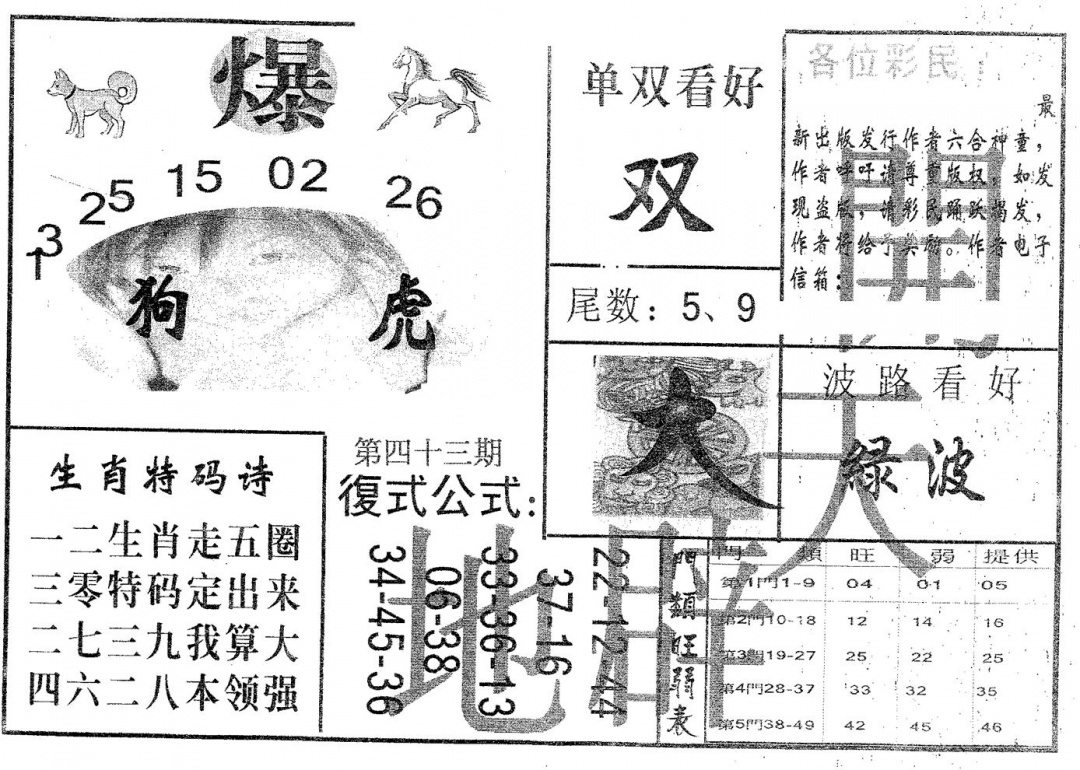 爆
25 15 02 26
13
狗 虎
单双看好
双
尾数：5、9
各位彩民：
最
新出版发行作者六合神童，
作者呼吁请尊重版权，如发
现盗版，请彩民踊跃揭发，
作者将给予奖励。作者电子
信箱：
大
波路看好
绿波
開天地
生肖特码诗
一二生肖走五圈
三零特码定出来
二七三九我算大
四六二八本领强
第四十三期
復式公式：
34-45-36
06-38
33-36-13
37-16
22-12-44
門類旺弱表
門 類 旺 弱 提供
第1門1-9 04 01 05
第2門10-18 12 14 16
第3門19-27 25 22 25
第4門28-37 33 32 35
第5門38-49 42 45 46